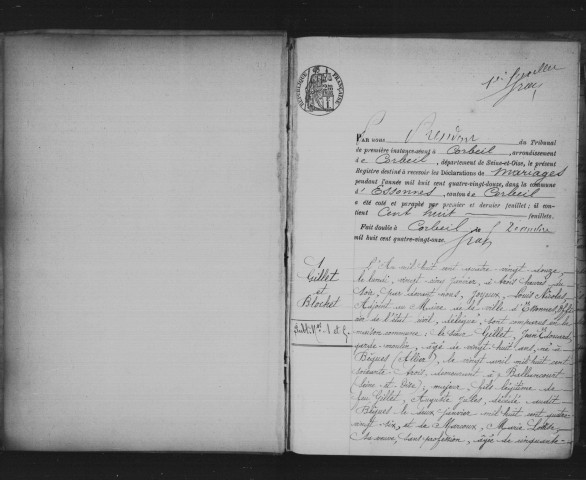 RÉPUBLIQUE FRANÇAISE
1er feuillet
Gras
PAR NOUS Président du Tribunal
de première instance séant à Corbeil, arrondissement
de Corbeil, département de Seine-et-Oise, le présent
Registre destiné à recevoir les Déclarations de Mariages
pendant l'année mil huit cent quatre-vingt-douze, dans la commune
d'Essonnes, canton de Corbeil
a été coté et paraphé par premier et dernier feuillet; il con-
tient Cent huit feuillets.
Fait double à Corbeil, le Décembre
mil huit cent quatre-vingt-onze.
Gras
1
Gillet
et
Blochet
Publ. Nos 1 et
L'An mil huit cent quatre vingt douze,
le lundi, vingt cinq janvier, à trois heures du
soir, par devant nous, Joyeux, Louis Nicolas,
Adjoint au Maire de la ville d'Essonnes, Offi-
cier de l'état civil, délégué, sont comparus en la
maison commune: le sieur Gillet, Jean Edouard,
garde moulin, âgé de vingt huit ans, né à
Bègues (Allier), le vingt avril mil huit cent
soixante trois, demeurant à Ballancourt
(Seine et Oise), majeur, fils légitime de
feu Gillet, Auguste Gilles, décédé audit
Bègues le deux janvier mil huit cent quatre
vingt six, et de Marcoux, Marie
sa veuve, sans profession, âgée de cinquante-